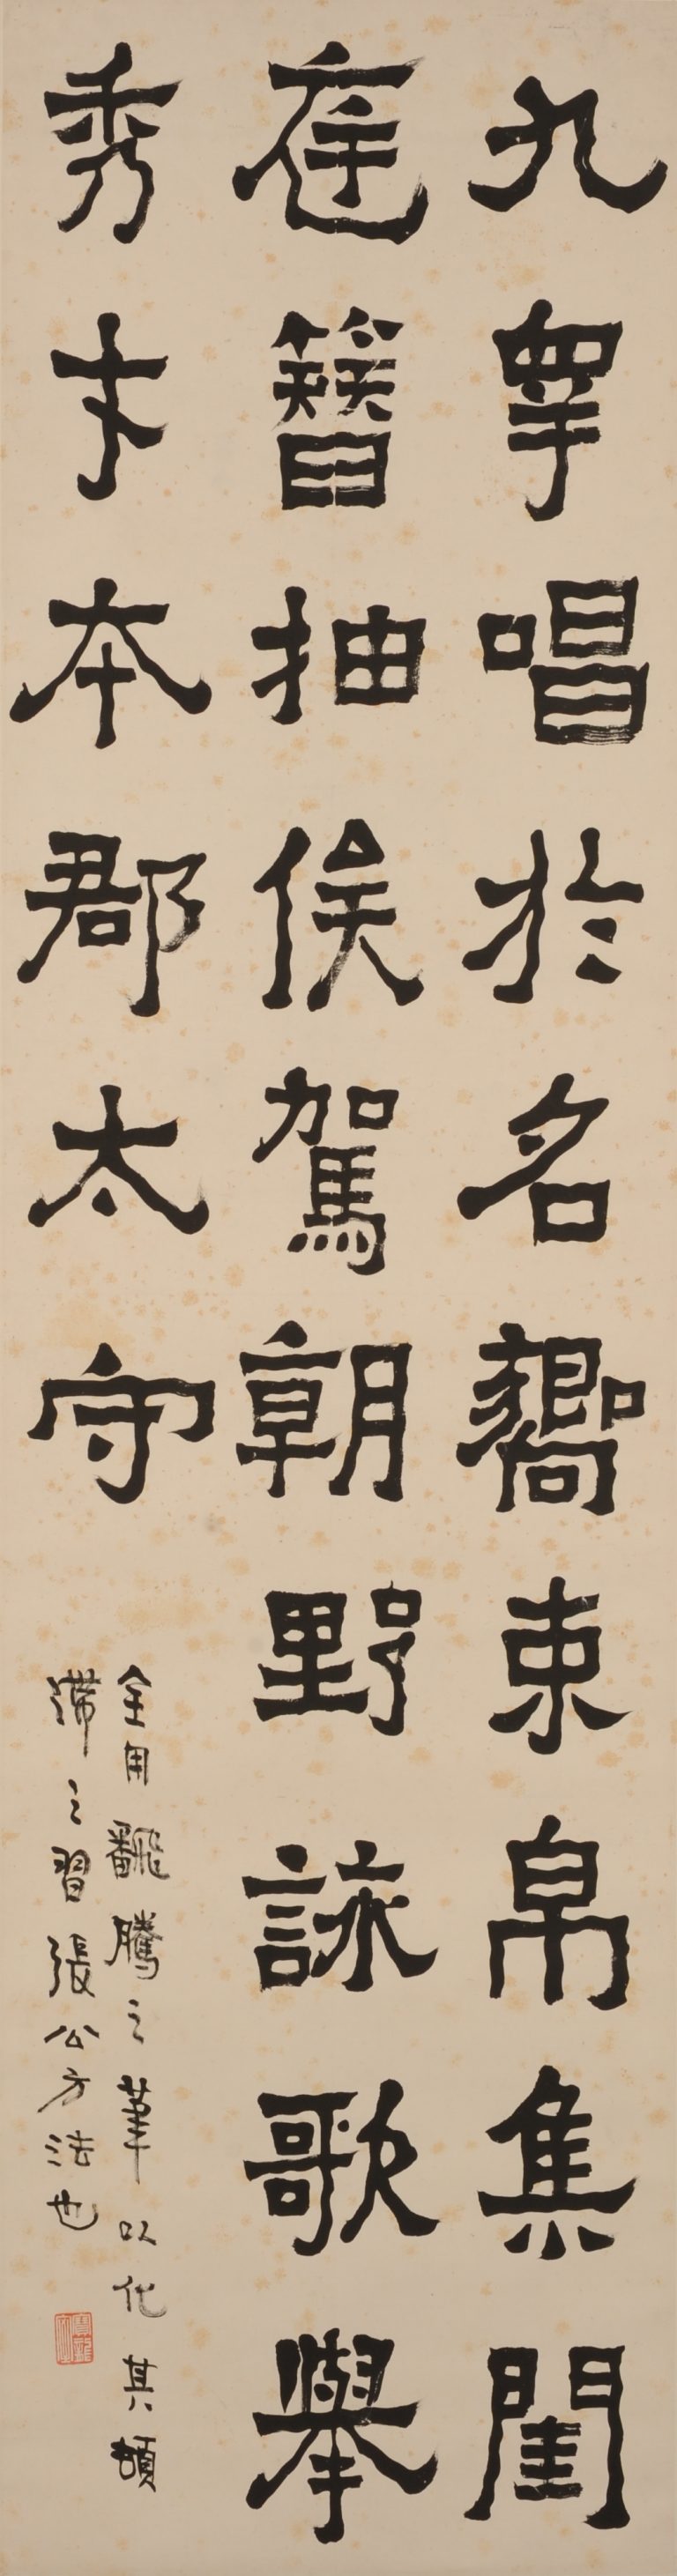 九皋唱於名嚮束帛集閨
庭簪抽俟駕朝野詠歌舉
秀才本郡太守
全用飜騰之筆以化其頓
滯之習張公方法也